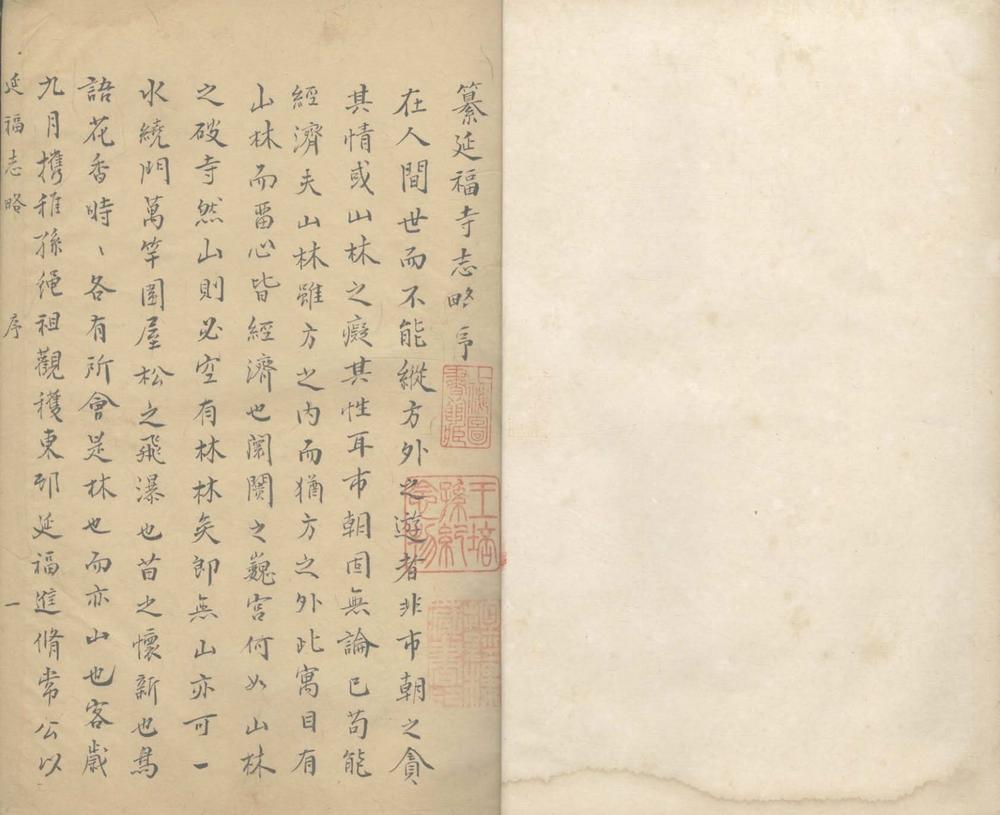 纂延福寺志略序
在人間世而不能縱方外之遊者非市朝之貪
其情或山林之癡其性耳市朝固無論已苟能
經濟夫山林雖方之內而猶方之外此寓目有
山林而畱心皆經濟也闤闠之巍宮何如山林
之破寺然山則必空有林林矣即無山亦可一
水繞門萬竿圍屋松之飛瀑也苗之懷新也鳥
語花香時時各有所會是林也而亦山也客歲
九月攜稚孫繩祖觀穫東邨延福進脩常公以
延福志略 序 一
王培孫紀念物